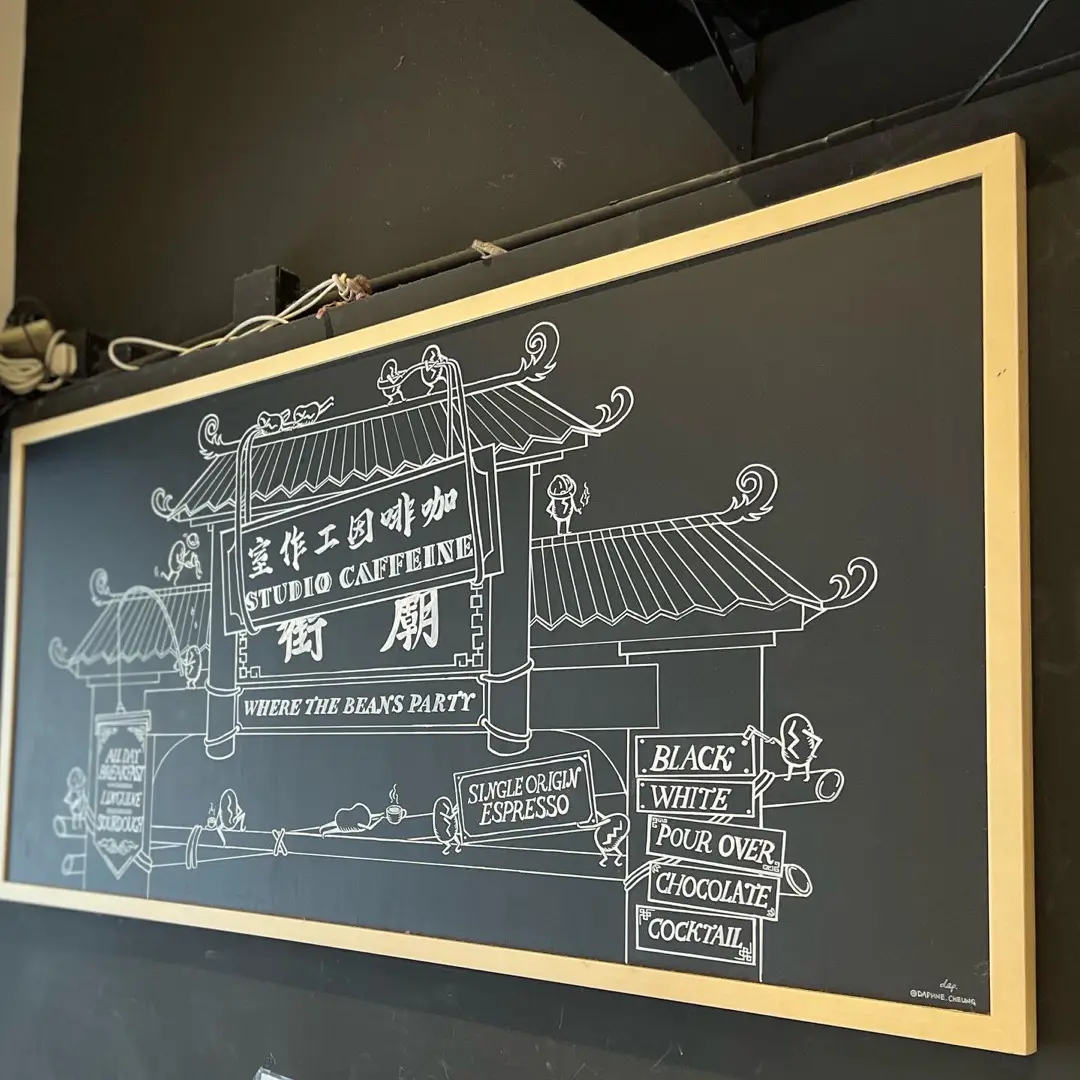 室作工因啡咖
STUDIO CAFFEINE
街 廟
WHERE THE BEANS PARTY
ALL DAY
BREAKFAST
LINGUINE
SOURDOUGH
SINGLE ORIGIN
ESPRESSO
BLACK
WHITE
POUR OVER
CHOCOLATE
COCKTAIL
dap.
@DAPHNE.CHEUNG